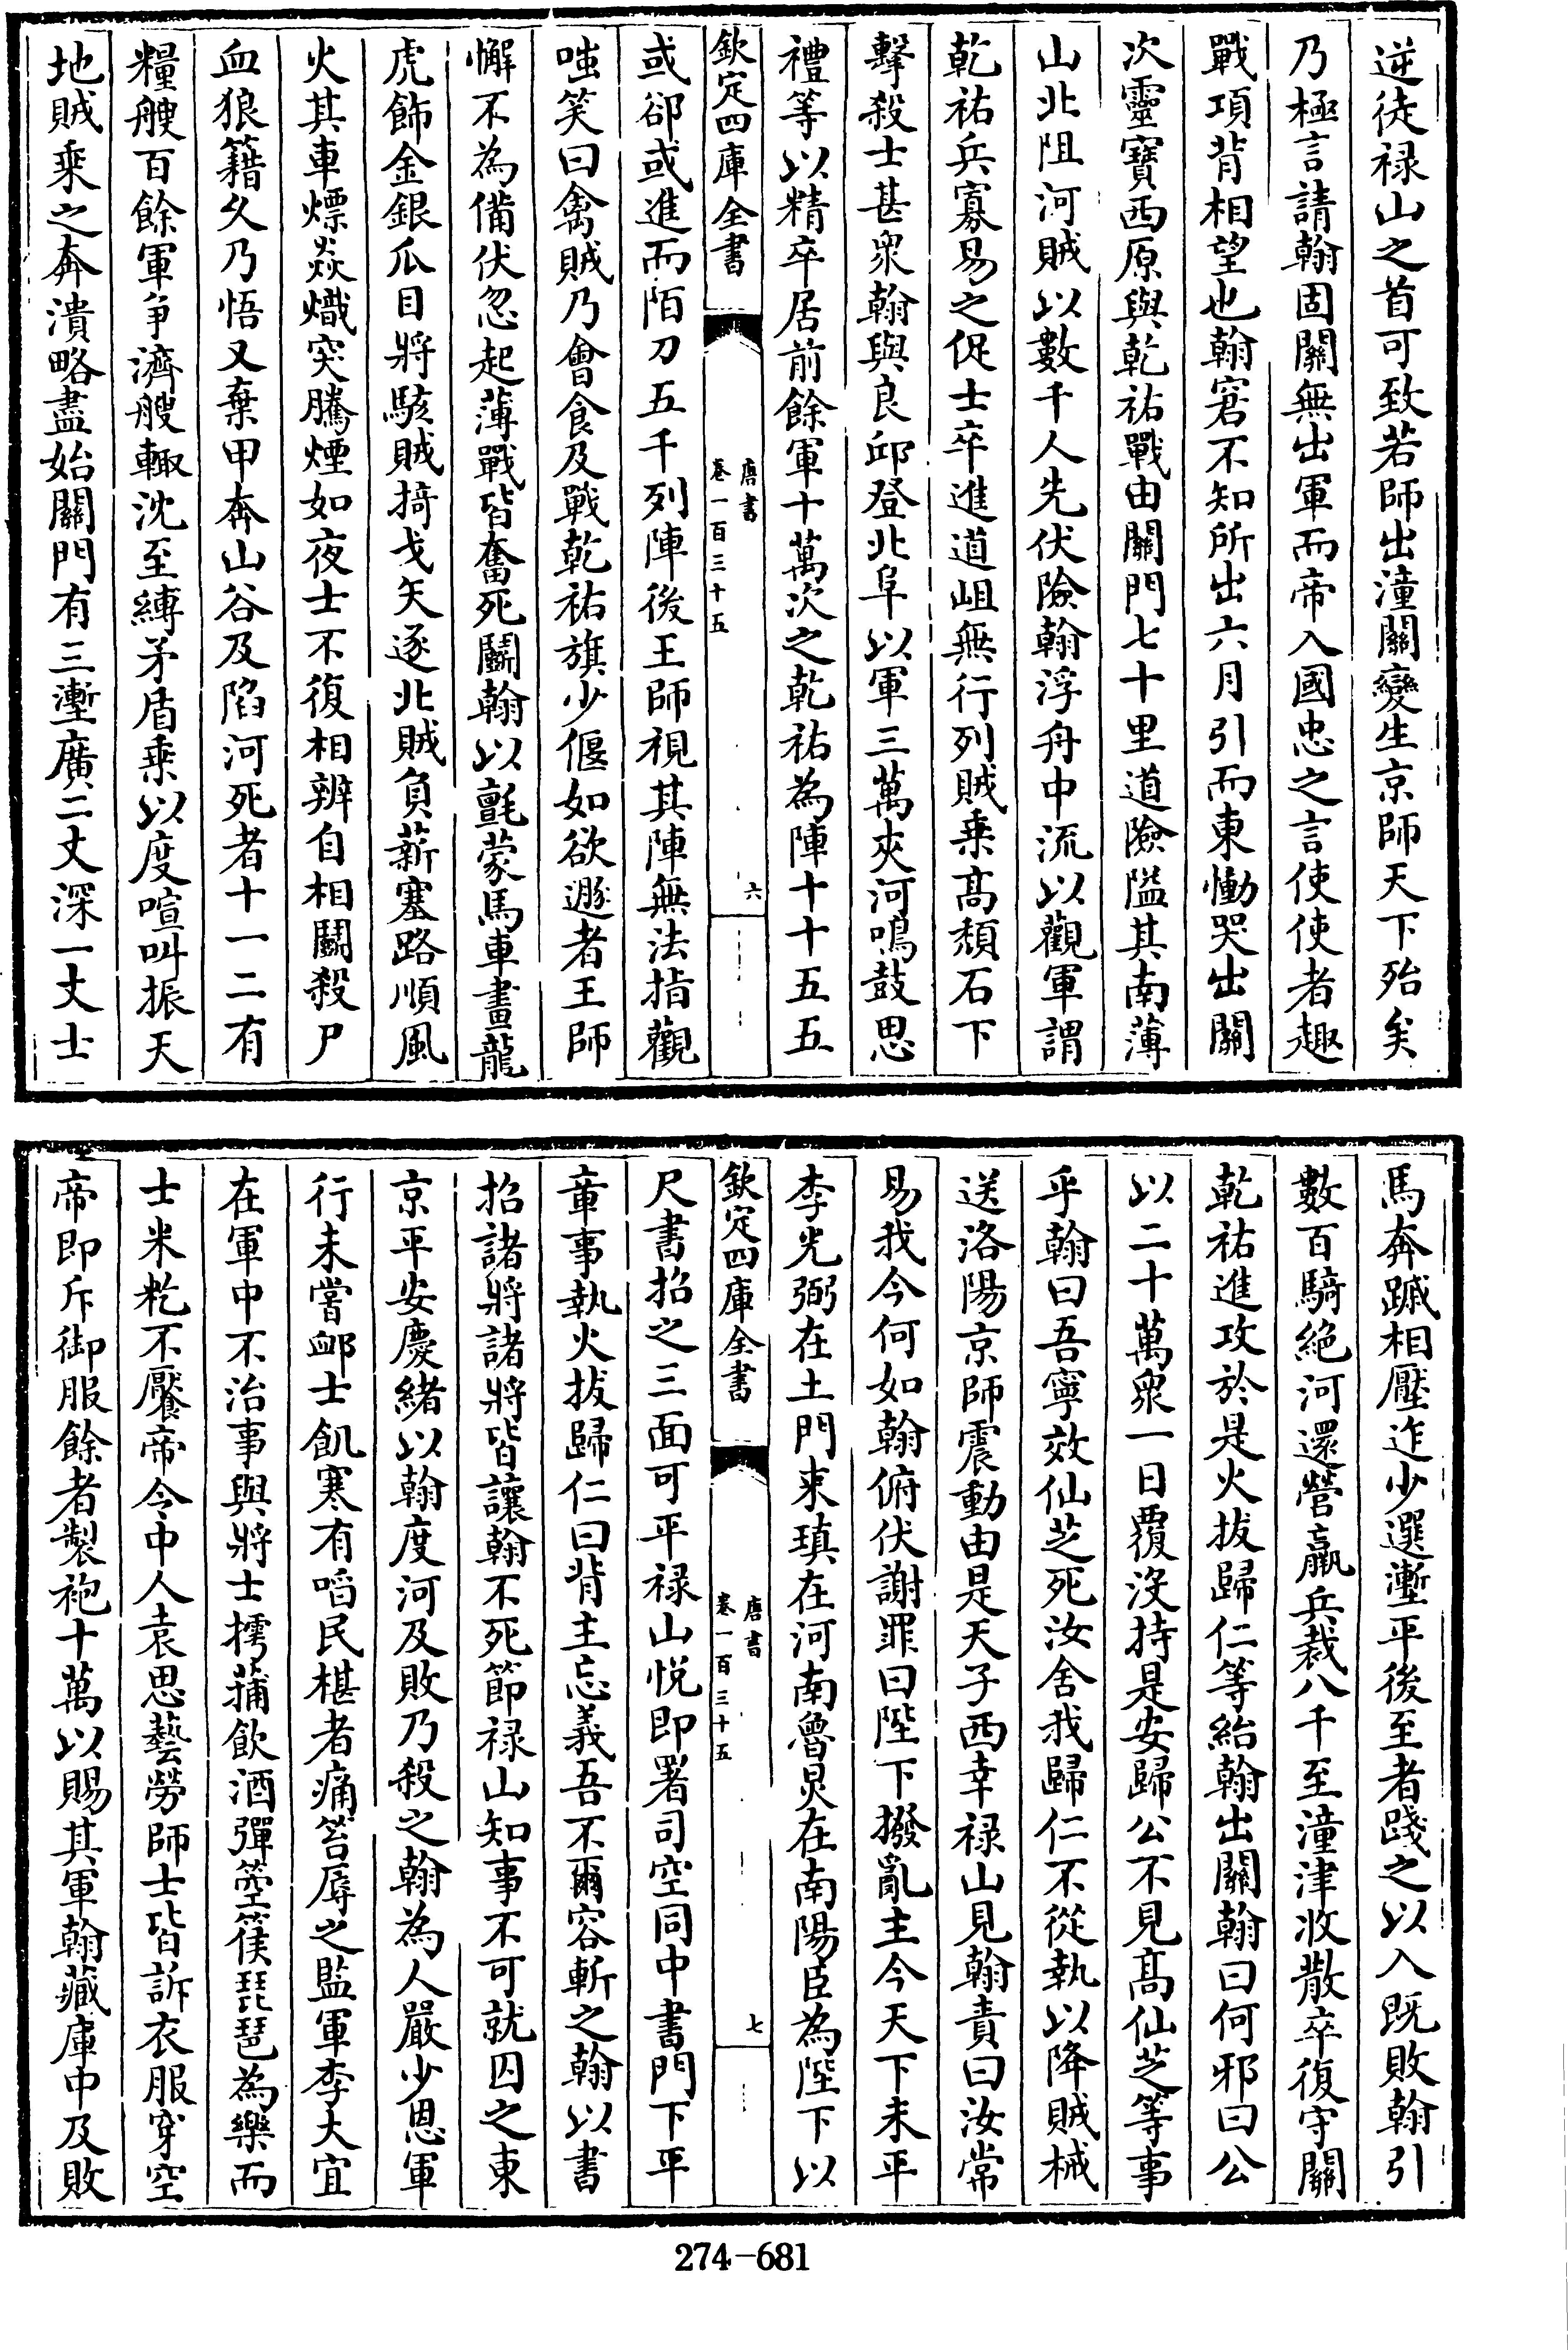 逆徒禄山之首可致若師出潼關變生京師天下殆矣
乃極言請翰固關無出軍而帝入國忠之言使使者趣
戰項背相望也翰窘不知所出六月引而東慟哭出關
次靈寶西原與乾祐戰由關門七十里道險隘其南薄
山北阻河賊以數千人先伏險翰浮舟中流以觀軍謂
乾祐兵寡易之促士卒進道岨無行列賊乘髙頽石下
擊殺士甚衆翰與良邱登北阜以軍三萬夾河鳴鼓思
禮等以精卒居前餘軍十萬次之乾祐為陣十十五五
欽定四庫全書
唐書
卷一百三十五
六
或卻或進而陌刀五千列陣後王師視其陣無法指觀
嗤笑曰禽賊乃會食及戰乾祐旗少偃如欲遯者王師
懈不為備伏忽起薄戰皆奮死鬬翰以氊蒙馬車畫龍
虎飾金銀瓜目將駭賊掎戈矢逐北賊負薪塞路順風
火其車熛焱熾突騰煙如夜士不復相辨自相鬬殺尸
血狼籍久乃悟又棄甲奔山谷及陷河死者十一二有
糧艘百餘軍爭濟艘輙沈至縛矛盾乘以度喧叫振天
地賊乘之奔潰略盡始關門有三塹廣二丈深一丈士
馬奔蹴相壓迮少選塹平後至者踐之以入既敗翰引
數百騎絶河還營羸兵裁八千至潼津收散卒復守關
乾祐進攻於是火拔歸仁等紿翰出關翰曰何邪曰公
以二十萬衆一日覆沒持是安歸公不見髙仙芝等事
乎翰曰吾寧效仙芝死汝舍我歸仁不從執以降賊械
送洛陽京師震動由是天子西幸禄山見翰責曰汝常
易我今何如翰俯伏謝罪曰陛下撥亂主今天下未平
李光弼在土門来瑱在河南魯炅在南陽臣為陛下以
欽定四庫全書
唐書
卷一百三十五
七
尺書招之三面可平禄山悦即署司空同中書門下平
章事執火拔歸仁曰背主忘義吾不爾容斬之翰以書
招諸將諸將皆讓翰不死節禄山知事不可就囚之東
京平安慶緒以翰度河及敗乃殺之翰為人嚴少恩軍
行未嘗䘏士飢寒有啗民椹者痛笞辱之監軍李大宜
在軍中不治事與將士摴蒱飲酒彈箜篌琵琶為樂而
士米籺不饜帝令中人袁思藝勞師士皆訴衣服穿空
帝即斥御服餘者製袍十萬以賜其軍翰藏庫中及敗
274-681